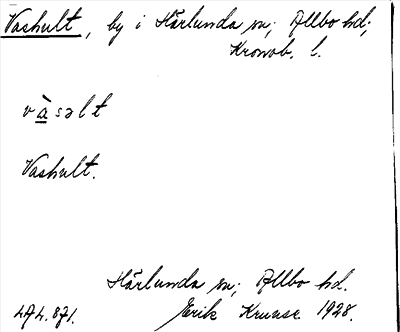 Vashult, by i Härlunda sn; Allbo hd;
Kronob. l.
vàsəlt
Vashult.
Härlunda sn; Allbo hd.
Erik Kruuse 1928.